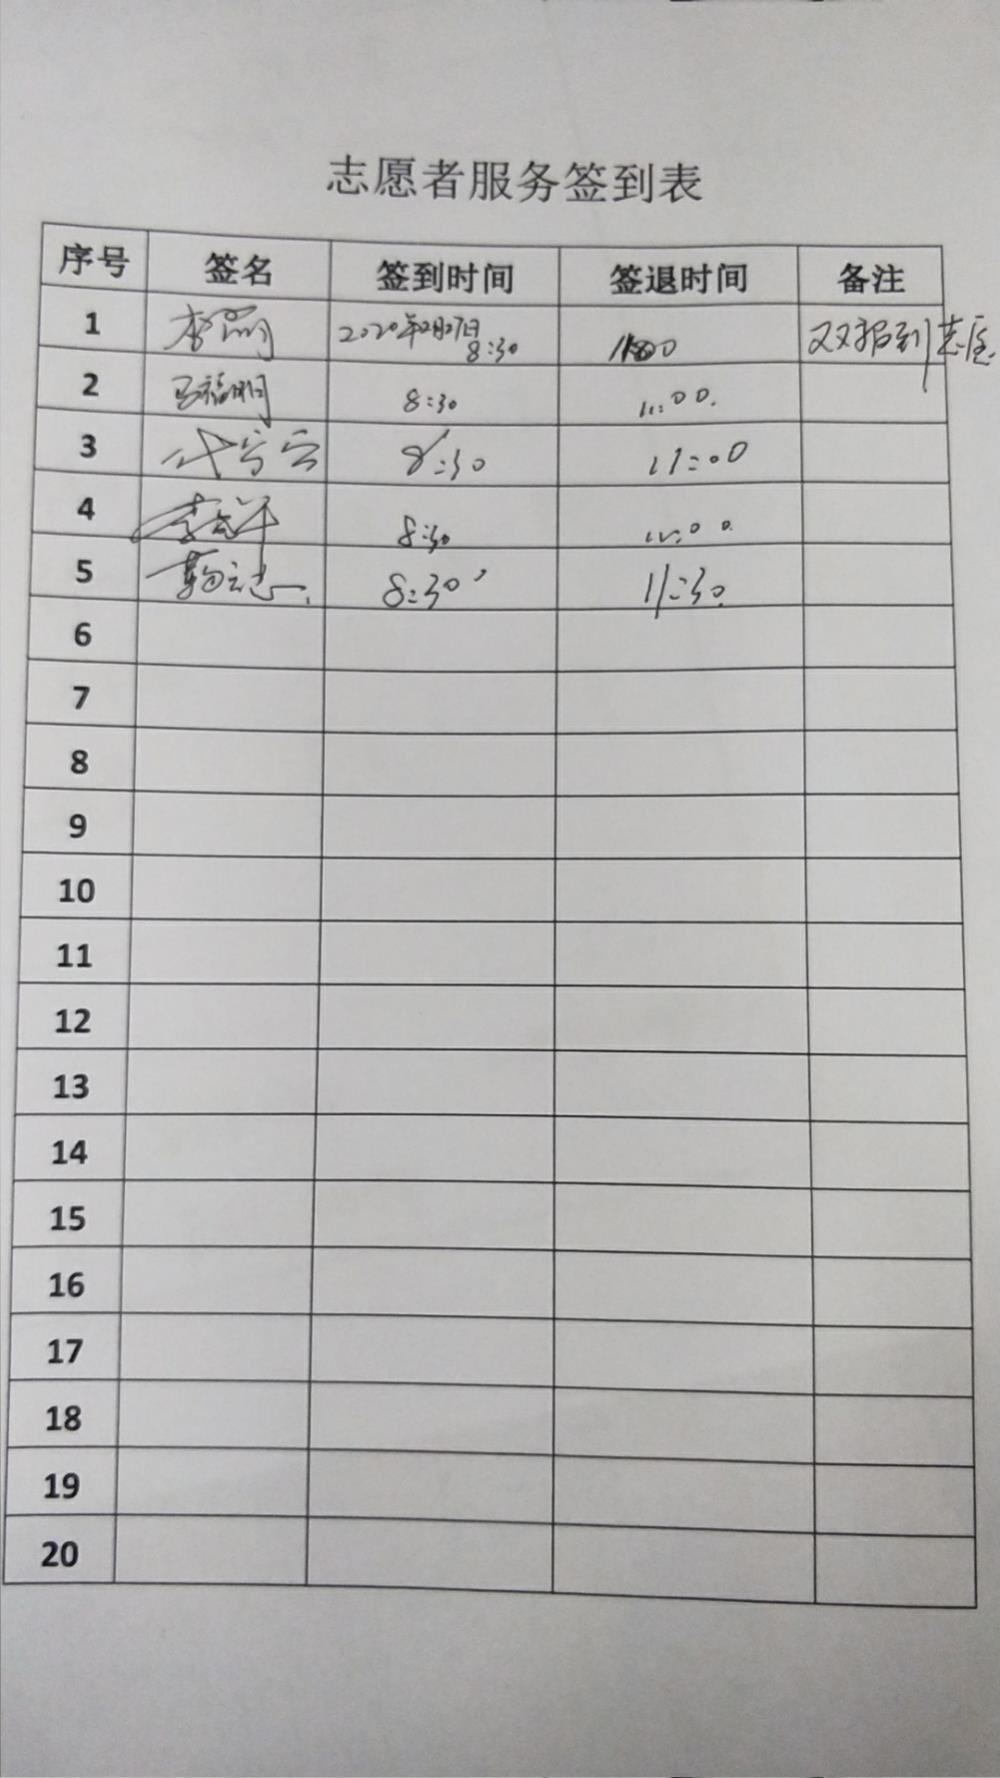 志愿者服务签到表
序号 签名 签到时间 签退时间 备注
1 2020年2月27日 8:30 11:00 双报到志愿
2 马福明 8:30 11:00.
3 8:30 11:00
4 8:30 11:00.
5 8:30 11:30.
6
7
8
9
10
11
12
13
14
15
16
17
18
19
20